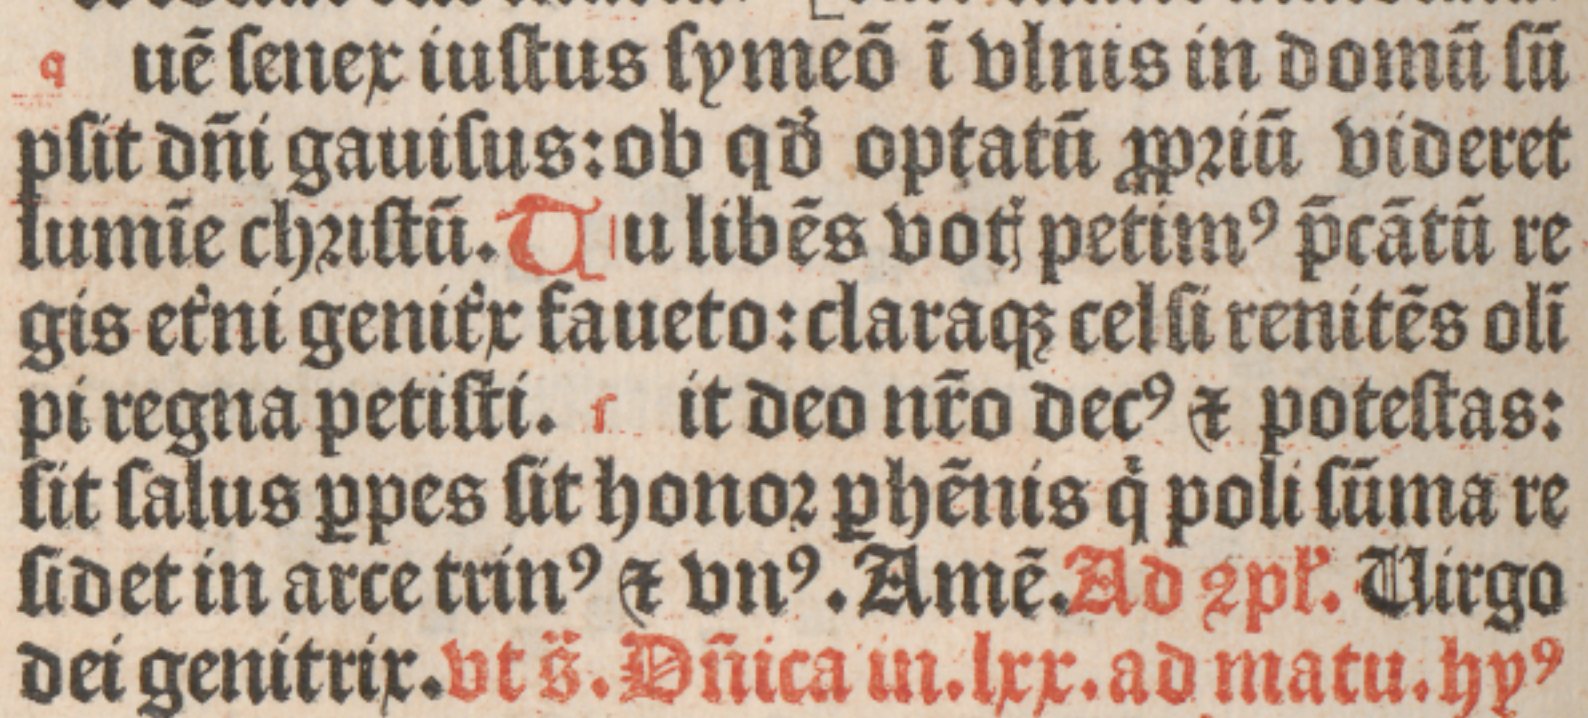 q uē ſenex iuſtus ſymeō ī vlnis in domū ſū
pſit dn̄i gauiſus: ob qď optatū ꝓpriū videret
lumīe chꝛiſtū. Tu libēs votꝭ petimꝰ p̄cātū re
gis et̉ni genit̉x faueto: claraqꝫ celſi renitēs olī
pi regna petiſti. ſ it deo nr̄o decꝰ ⁊ poteſtas:
ſit ſalus ꝑpes ſit honoꝛ ꝑhēnis qͥ poli ſūma re
ſidet in arce trinꝰ ⁊ vnꝰ. Amē. Ad ꝯpl̉. Uirgo
dei genitrix. vt s̄. Dn̄ica in. lxx. ad matu. hyꝰ